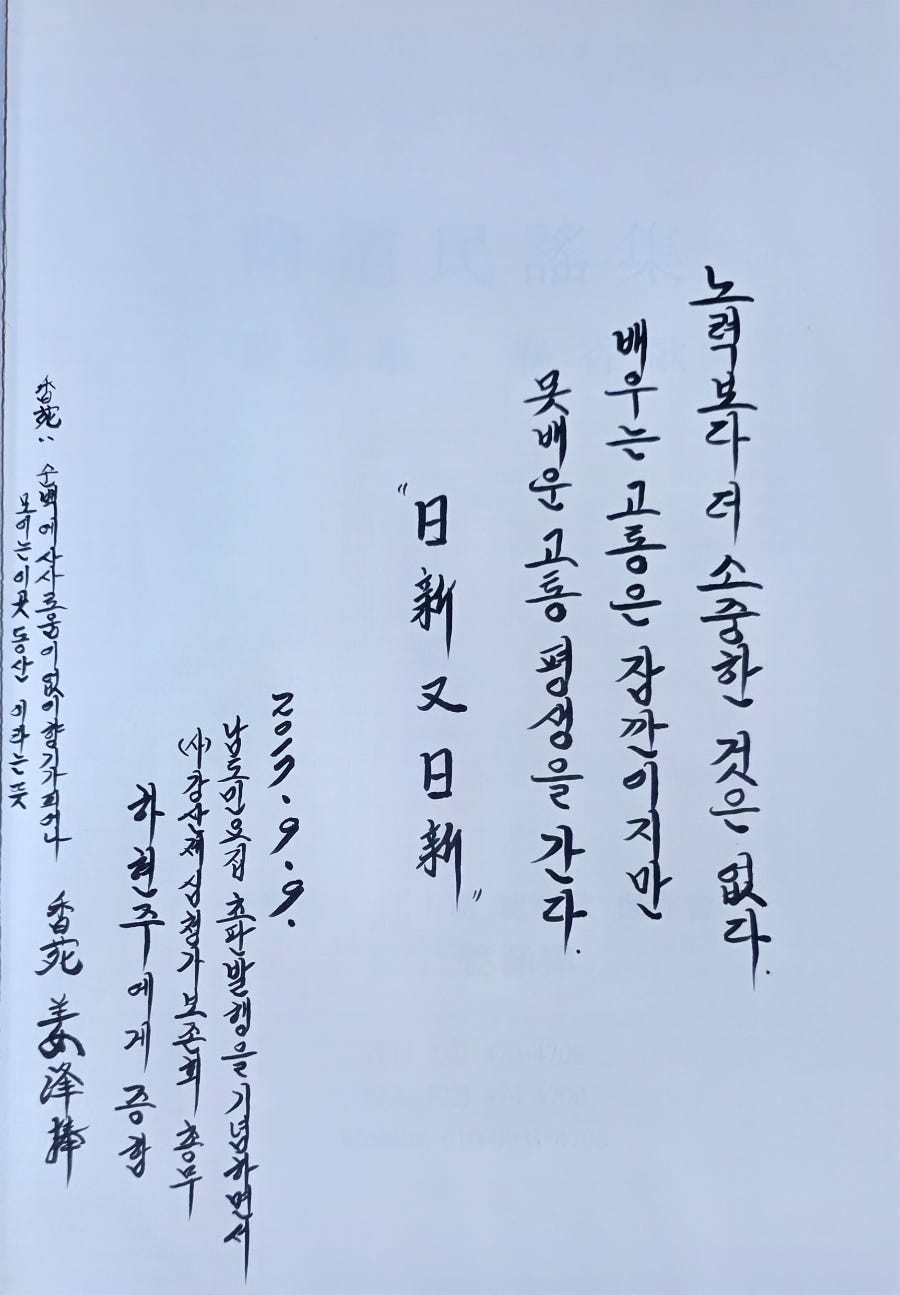 노력보다 더 소중한 것은 없다.
배우는 고통은 잠깐이지만
못배운 고통 평생을 간다.
"日新又日新"
2017.9.9.
남도민요집 초판발행을 기념하면서
(사)강산제심청가보존회 총무
하현주에게 증함
香苑: 순백에 사사로움이 없이 향기가 피어나
모이는 이곳 동산 이라는 뜻
香苑 姜泽捧